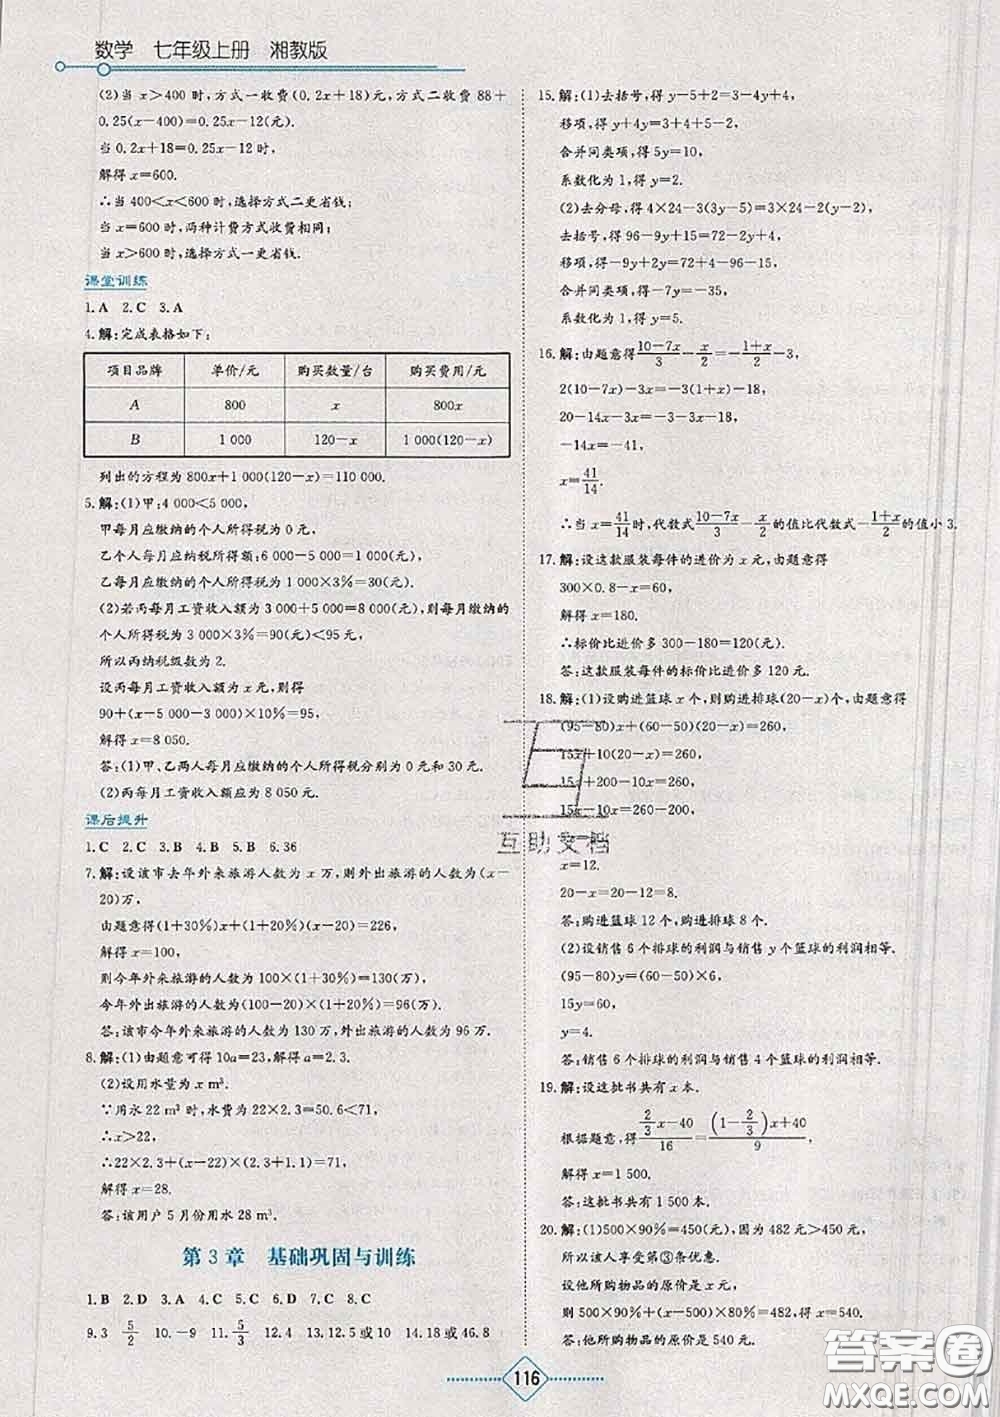 数学 七年级上册 湘教版
(2)当 x>400 时,方式一收费(0.2x+18)元,方式二收费 88+
0.25(x-400)=0.25x-12(元).
当 0.2x+18=0.25x-12 时,
解得 x=600.
∴当 400<x<600 时,选择方式二更省钱;
当 x=600 时,两种计费方式收费相同;
当 x>600 时,选择方式一更省钱.
课堂训练
1.A 2.C 3.A
4.解:完成表格如下:
项目品牌 单价/元 购买数量/台 购买费用/元
A 800 x 800x
B 1 000 120-x 1 000(120-x)
列出的方程为 800x+1 000(120-x)=110 000.
5.解:(1)甲:4 000<5 000,
甲每月应缴纳的个人所得税为 0 元,
乙个人每月应纳税所得额:6 000-5 000=1 000(元),
乙每月应缴纳的个人所得税为 1 000×3%=30(元).
(2)若丙每月工资收入额为 3 000+5 000=8 000(元),则每月缴纳的
个人所得税为 3 000×3%=90(元)<95(元),
所以丙纳税级数为 2.
设丙每月工资收入额为 x 元,则得
90+(x-5 000-3 000)×10%=95,
解得 x=8 050.
答:(1)甲、乙两人每月应缴纳的个人所得税分别为 0 元和 30 元.
(2)丙每月工资收入额应为 8 050 元.
课后提升
1.C 2.C 3.B 4.B 5.B 6.36
7.解:设该市去年外来旅游人数为 x 万,则外出旅游的人数为(x-
20)万,
由题意得(1+30%)x+(1+20%)(x-20)=226,
解得 x=100,
则今年外来旅游的人数为 100×(1+30%)=130(万),
今年外出旅游的人数为(100-20)×(1+20%)=96(万).
答:该市今年外来旅游的人数为 130 万,外出旅游的人数为 96 万.
8.解:(1)由题意可得 10a=23,解得 a=2.3.
(2)设用水量为 x m³.
∵用水 22 m³ 时,水费为 22×2.3=50.6<71,
∴x>22,
∴22×2.3+(x-22)×(2.3+1.1)=71,
解得 x=28.
答:该用户 5 月份用水 28 m³.
第 3 章 基础巩固与训练
1.B 2.D 3.A 4.C 5.C 6.D 7.C 8.C
9.3 5/2 10.-9 11.5/3 12.4 13.12.5 或 10 14.18 或 46.8
15.解:(1)去括号,得 y-5+2=3-4y+4,
移项,得 y+4y=3+4+5-2,
合并同类项,得 5y=10,
系数化为 1,得 y=2.
(2)去分母,得 4×24-3(3y-5)=3×24-2(y-2),
去括号,得 96-9y+15=72-2y+4,
移项,得 -9y+2y=72+4-96-15,
合并同类项,得 -7y=-35,
系数化为 1,得 y=5.
16.解:由题意得(10-7x)/3-x/2=-(1+x)/2-3,
2(10-7x)-3x=-3(1+x)-18,
20-14x-3x=-3-3x-18,
-14x=-41,
x=41/14.
∴当 x=41/14时,代数式(10-7x)/3-x/2的值比代数式-(1+x)/2的值小 3.
17.解:设这款服装每件的进价为 x 元,由题意得
300×0.8-x=60,
解得 x=180.
∴标价比进价多 300-180=120(元).
答:这款服装每件的标价比进价多 120 元.
18.解:(1)设购进篮球 x 个,则购进排球(20-x)个,由题意得
(95-80)x+(60-50)(20-x)=260,
15x+10(20-x)=260,
15x+200-10x=260,
15x-10x=260-200,
x=12.
20-x=20-12=8.
答:购进篮球 12 个,购进排球 8 个.
(2)设销售 6 个排球的利润与销售 y 个篮球的利润相等.
(95-80)y=(60-50)×6,
15y=60,
y=4.
答:销售 6 个排球的利润与销售 4 个篮球的利润相等.
19.解:设这批书共有 x 本.
根据题意,得(2/3x-40)/16=((1-2/3)x+40)/9,
解得 x=1 500.
答:这批书共有 1 500 本.
20.解:(1)500×90%=450(元),因为 482 元>450 元,
所以该人享受第③条优惠.
设他所购物品的原价是 x 元,
则 500×90%+(x-500)×80%=482,得 x=540.
答:他所购物品的原价是 540 元.
互助文档
116
答案圈
MXQE.COM